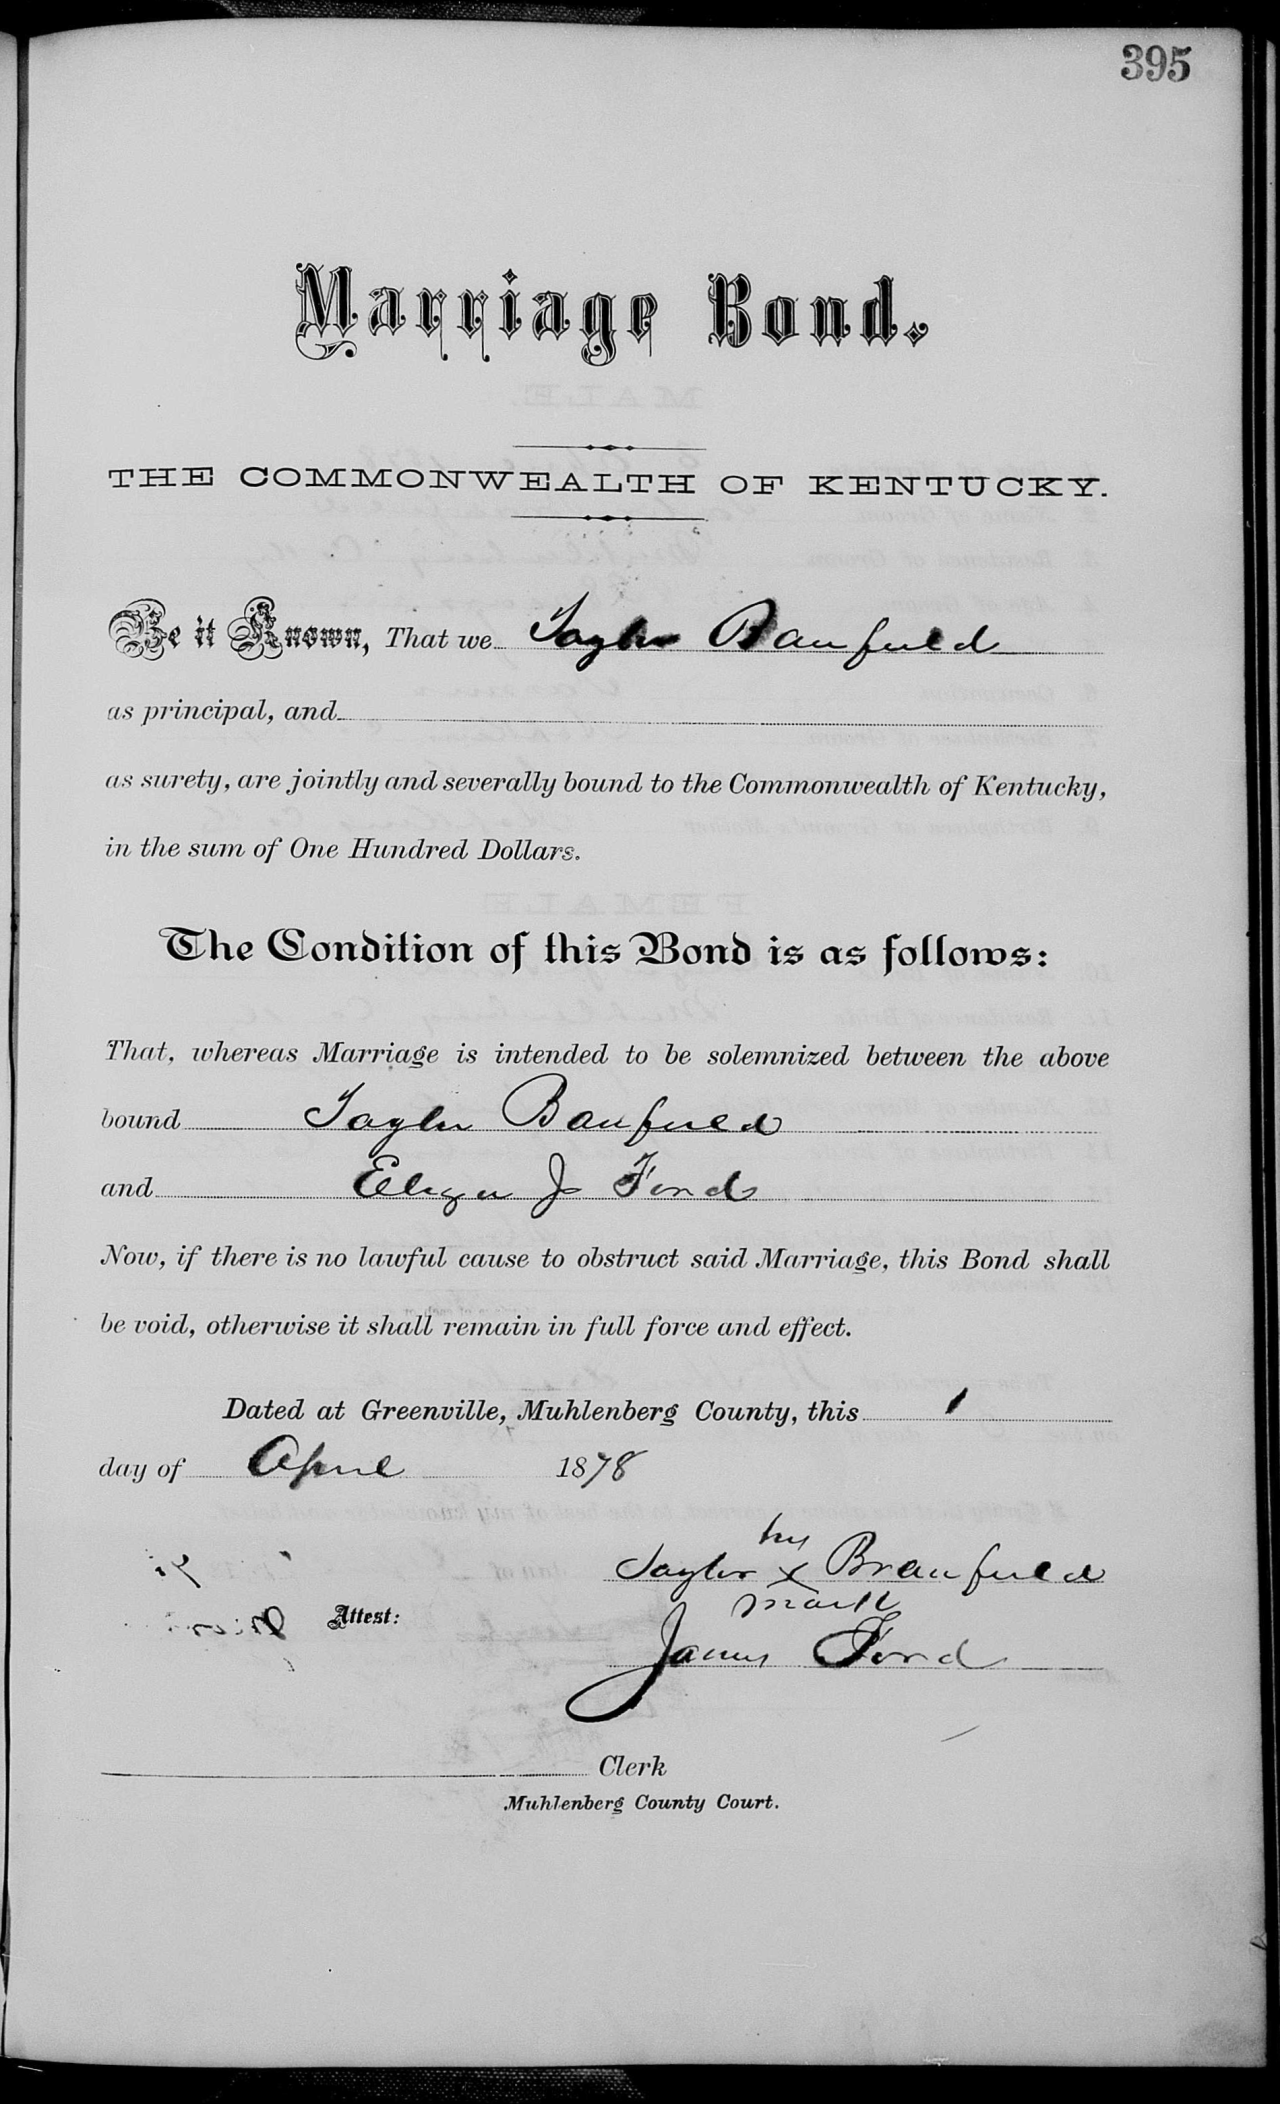 395
Marriage Bond.
THE COMMONWEALTH OF KENTUCKY.
Be it Known, That we Taylor Banfield
as principal, and
as surety, are jointly and severally bound to the Commonwealth of Kentucky,
in the sum of One Hundred Dollars.
The Condition of this Bond is as follows:
That, whereas Marriage is intended to be solemnized between the above
bound Taylor Banfield
and Eliza J Ford
Now, if there is no lawful cause to obstruct said Marriage, this Bond shall
be void, otherwise it shall remain in full force and effect.
Dated at Greenville, Muhlenberg County, this 1
day of April 1878
his
Taylor x Branfield
mark
Attest:
James Ford
Clerk
Muhlenberg County Court.